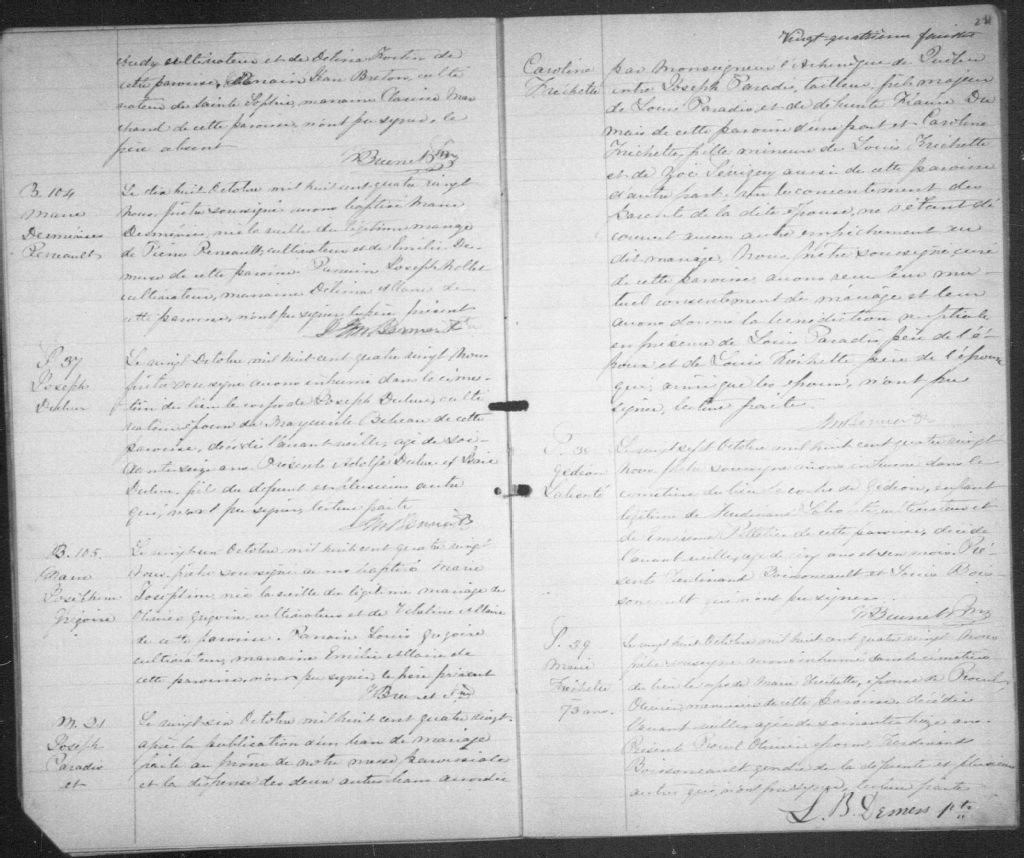 cultivateur et de Delima Fortin de
cette paroisse, Parrain Jean Breton, culti
vateur de Sainte Sophie, marraine Clarisse Mar
chand de cette paroisse, n'ont pu signer, le
père absent
B. 104
Marie
Desneiges
Perreault
Le dix huit Octobre mil huit cent quatre vingt
Nous, prêtre soussigné avons baptisé Marie
Desneiges, née la veille du légitime mariage
de Pierre Perreault, cultivateur et de Emélie
de cette paroisse. Parrain Joseph Nollet
cultivateur, marraine Delima Allaire de
cette paroisse, n'ont pu signer le père présent
S. 37
Joseph
Dulac
Le vingt Octobre mil huit cent quatre vingt Nous
prêtre soussigné avons inhumé dans le cime-
tière du lieu le corps de Joseph Dulac, culti
vateur époux de Marguerite Bilodeau de cette
paroisse, décédé l'avant veille, agé de soi-
xante seize ans. Présents Adolphe Dulac et
Dulac, fils du défunt et plusieurs autres
qui n'ont pu signer, lecture faite
B. 105
Marie
Joséphine
Grégoire
Le vingt un Octobre mil huit cent quatre vingt
Nous, prêtre soussigné avons baptisé Marie
Joséphine née la veille du légitime mariage de
Olivier Grégoire, cultivateur et de Adeline Allaire
de cette paroisse. Parrain Louis Grégoire
cultivateur, marraine Emilie Allaire de
cette paroisse, n'ont pu signer le père présent
M. 21
Joseph
Paradis
et
Le vingt six Octobre mil huit cent quatre vingt,
après la publication d'un ban de mariage
faite au prône de notre messe paroissiale
et la dispense des deux autres bans accordée
Vingt quatrième feuillet
Caroline
Fréchette
par Monseigneur l'Archevêque de Québec
entre Joseph Paradis, tailleur, fils majeur
de Louis Paradis, et de défunte Du
mais de cette paroisse d'une part et Caroline
Fréchette, fille mineure de Louis Fréchette
et de Zoé aussi de cette paroisse
d'autre part. Vu le consentement des
Parents de la dite épouse, ne s'étant dé
couvert aucun autre empêchement au
dit mariage, Nous Prêtre soussigné, curé
de cette paroisse avons reçu leur mu-
tuel consentement de mariage et leur
avons donné la bénédiction nuptiale
en présence de Louis Paradis, père de l'é
poux et de Louis Fréchette père de l'épouse
qui, ainsi que les époux, n'ont pu
signer, lecture faite
S. 38
Gédéon
Laliberté
Le vingt sept Octobre mil huit cent quatre vingt
Nous prêtre soussigné avons inhumé dans le
cimetière du lieu le corps de Gédéon, enfant
légitime de Ferdinand Laliberté, cultivateur et
de Pelletier de cette paroisse, décédé
l'avant veille, agé de cinq ans et six mois. Pré
sents Ferdinand Boissoneault et Louis Bois-
soneault qui n'ont pu signer
S. 39
Marie
Fréchette
73 ans
Le vingt huit Octobre mil huit cent quatre vingt Nous
prêtre soussigné avons inhumé dans le cimetière
du lieu le corps de Marie Fréchette, épouse de
Olivier, menuisier de cette Paroisse, décédée
l'avant veille, agée de soixante treize ans.
Présents Olivier époux, Ferdinand
Boissoneault gendre de la défunte et plusieurs
autres qui n'ont pu signer, lecture faite
L. B. Demers Ptre